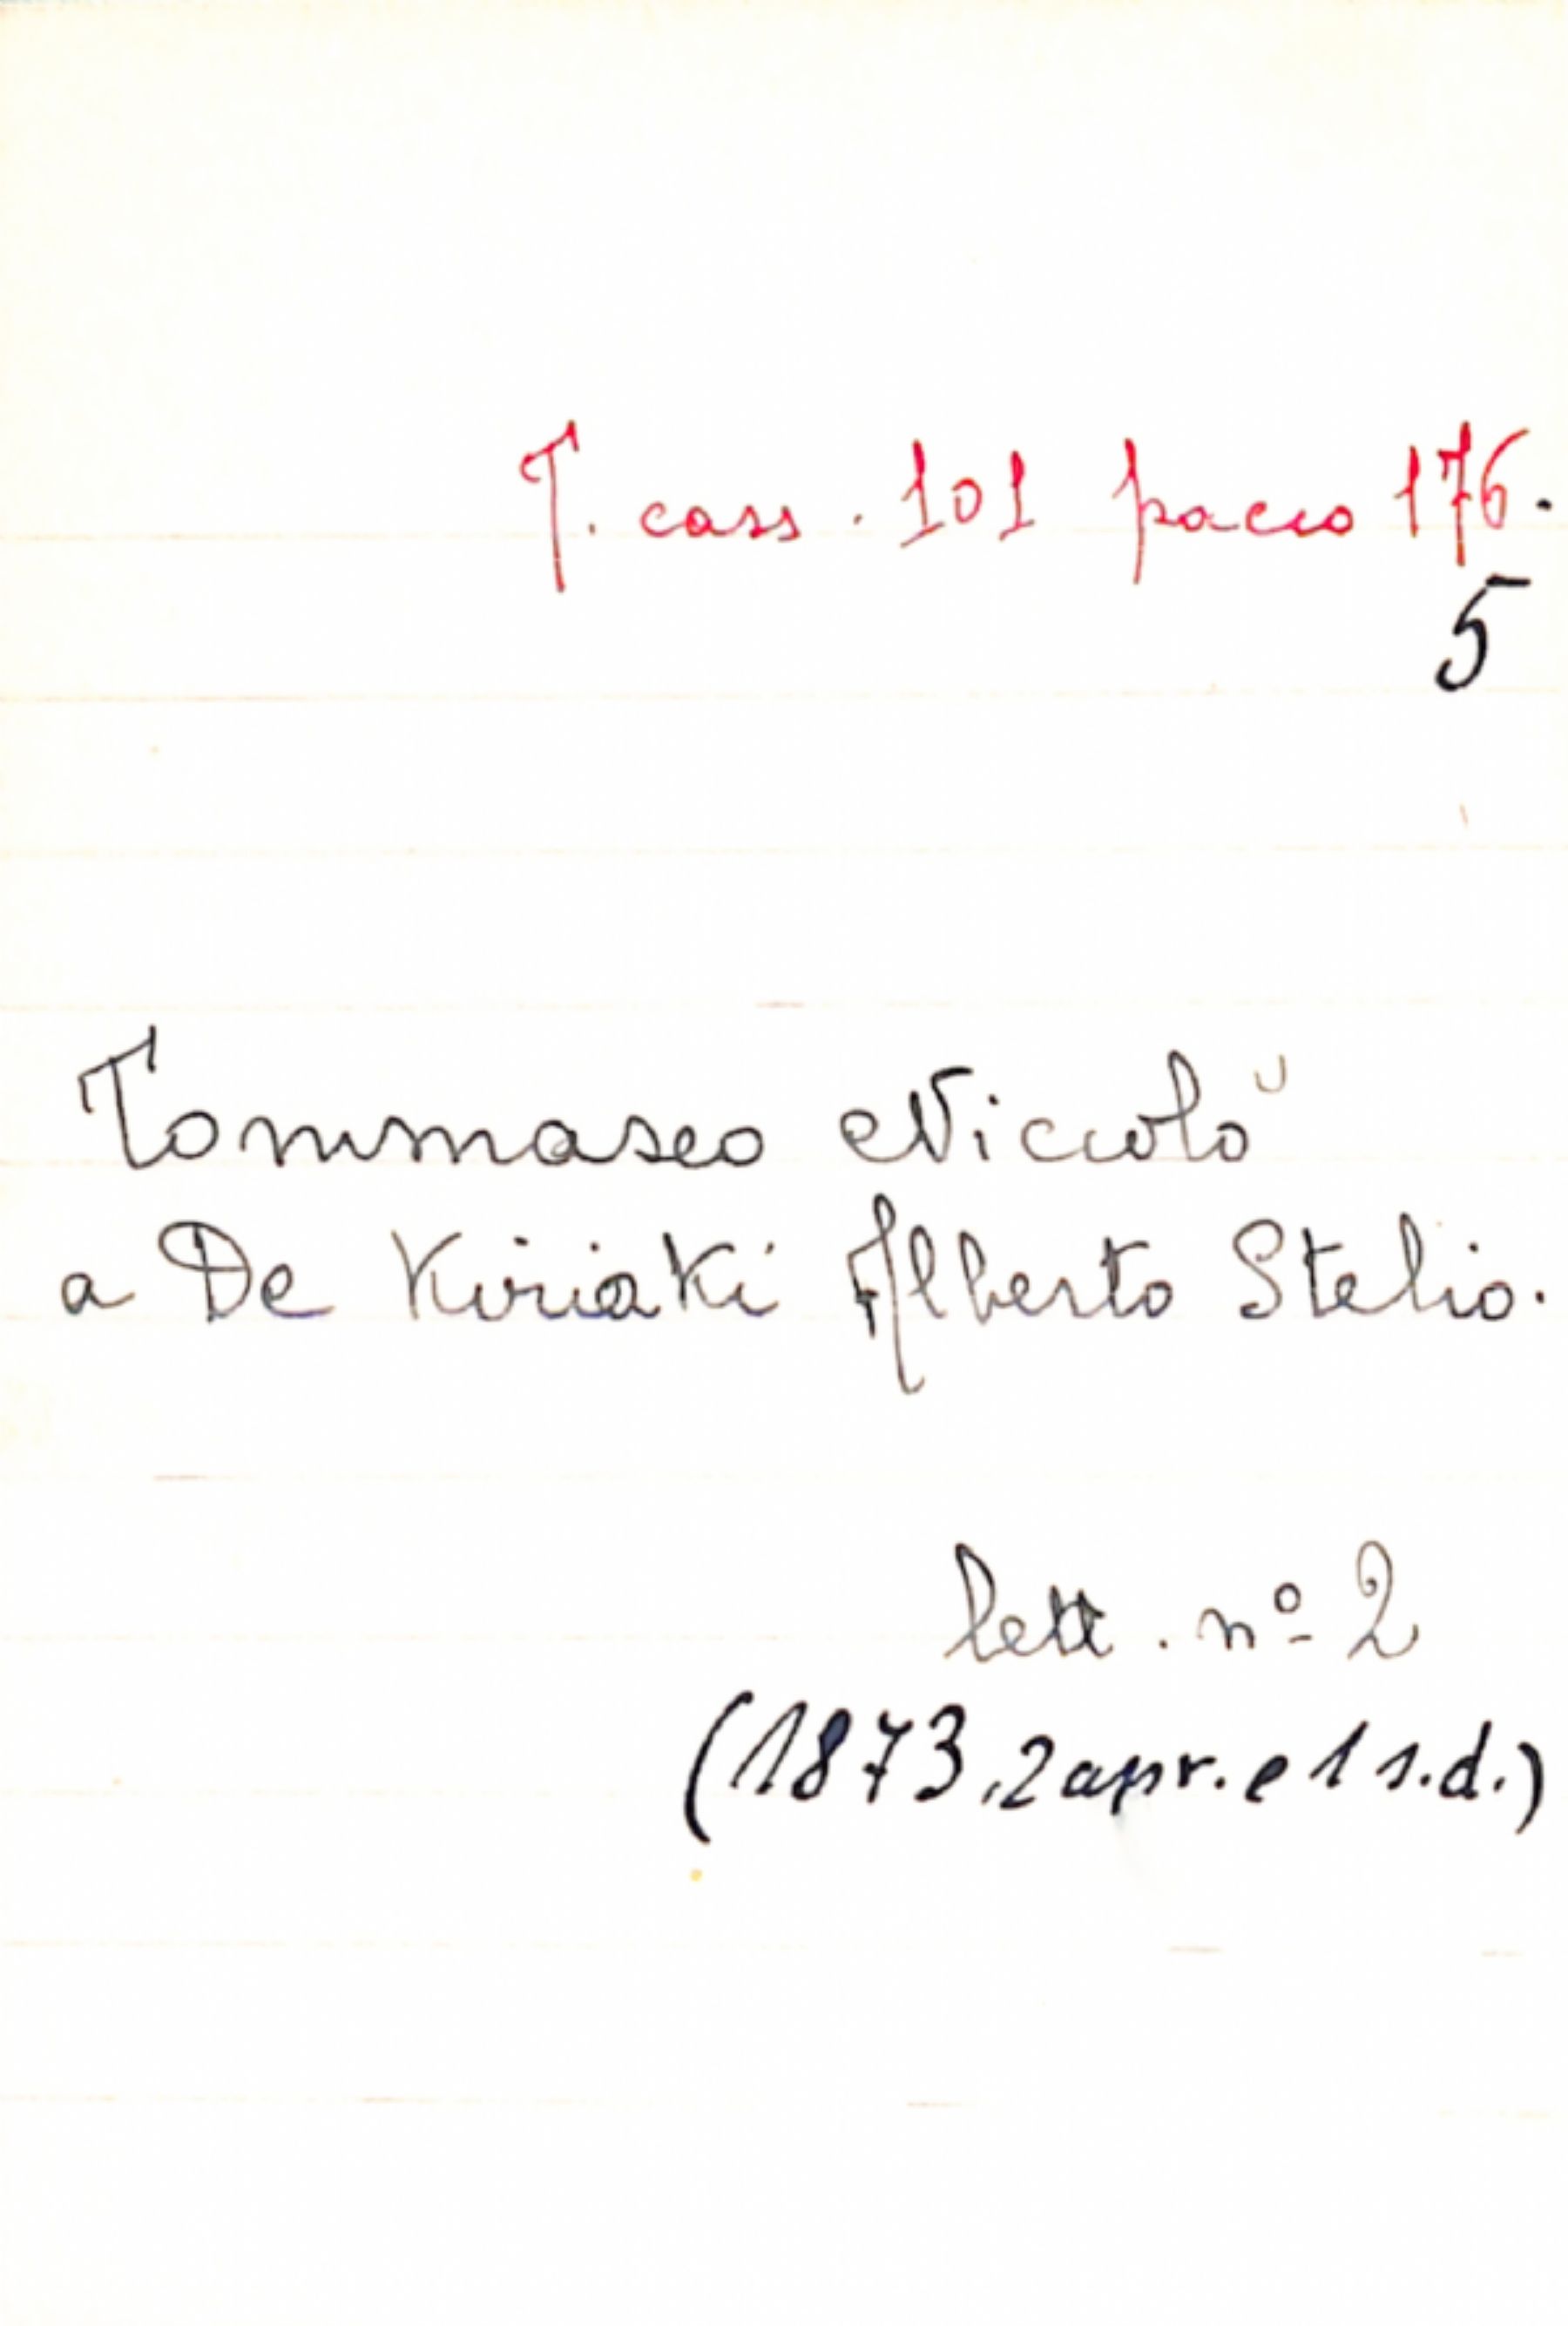 T. cass. 101 pacco 176.
5
Tommaseo Niccolò
a De Kiriaki Alberto Stelio.
lett. nº 2
(1873, 2 apr. e 1 s.d.)